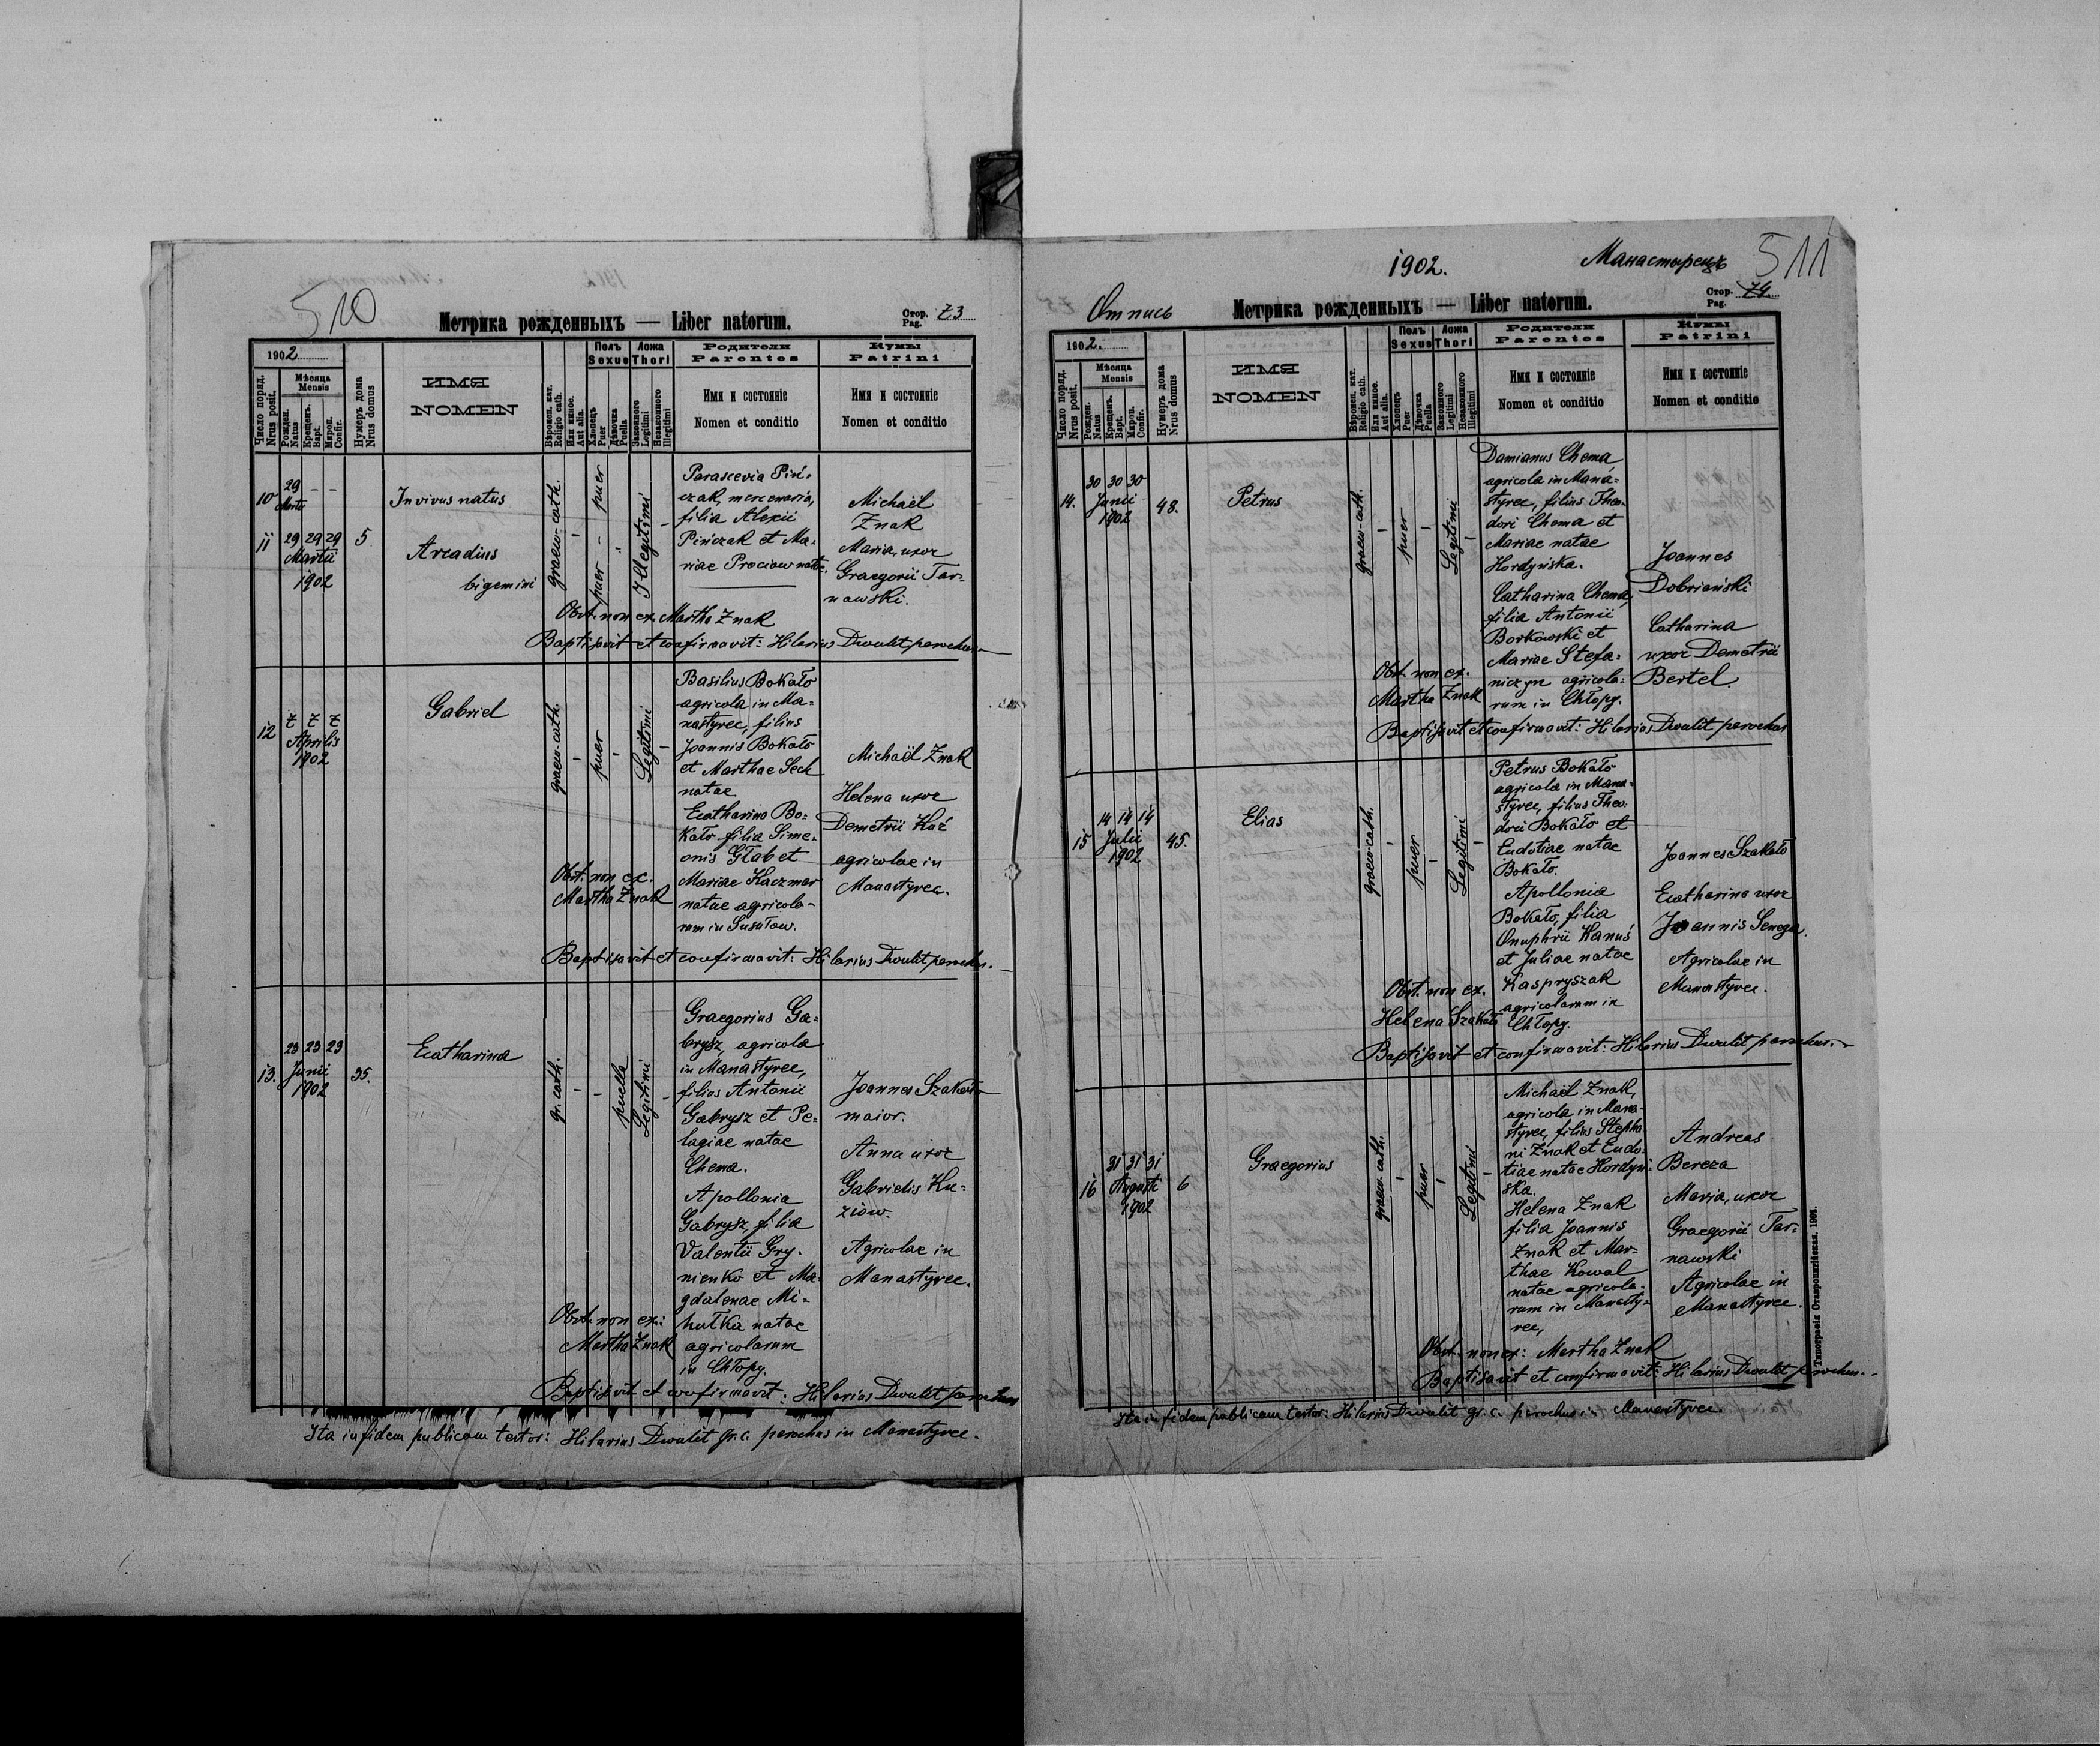 510
Метрика рожденныхъ — Liber natorum.
Стор. Pag. 73
1902
Число поряд. Nrus posit.
Мѣсяца Mensis
Рожден. Natus
Крещенъ. Bapt.
Мироп. Confir.
Нумеръ дома Nrus domus
ИМЯ
NOMEN
Вѣроисп. кат. Religio cath.
Или инное. Aut alia.
Полъ Sexus
Хлопецъ Puer
Дѣвочка Puella
Ложа Thori
Законного Legitimi
Незаконного Illegitimi
Родители
Parentes
Имя и состоянiе
Nomen et conditio
Кумы
Patrini
Имя и состоянiе
Nomen et conditio
10
29 - -
Martii
Invivus natus
11
29 29 29
Martii
1902
5
Arcadius
bigemini
graeco-cath.
puer
puer
Illegitimi
Parascevia Piń-
czak, mercenaria,
filia Alexii
Pińczak et Ma-
riae Prociow natae.
Michaël
Znak
Maria, uxor
Graegorii Tar-
nawski.
Obst. non ex. Martha Znak
Baptisavit et confirmavit: Hilarius Dwulit parochus.
12
7 7 7
Aprilis
1902
Gabriel
graeco-cath.
puer
Legitimi
Basilius Bokało
agricola in Ma-
nastyrec, filius
Joannis Bokało
et Marthae Sech
natae
Ecatharina Bo-
kało filia Sime-
onis Głab et
Mariae Kaczmar
natae agricola-
rum in Susułow.
Michaël Znak
Helena uxor
Demetrii Kuź
agricolae in
Manastyrec.
Obst. non ex.
Martha Znak
Baptisavit et confirmavit: Hilarius Dwulit parochus.
13.
23 23 23
Junii
1902
35.
Ecatharina
gr. cath.
puella
Legitimi
Graegorius Ga-
brysz, agricola
in Manastyrec,
filius Antonii
Gabrysz et Pe-
lagiae natae
Chema.
Apollonia
Gabrysz, filia
Valentii Gry-
nienko et Ma-
gdalenae Mi-
hułka natae
agricolarum
in Chłopy.
Joannes Szakało
maior.
Anna uxor
Gabrielis Ku-
ziow.
Agricolae in
Manastyrec.
Obst. non ex:
Martha Znak
Baptisavit et confirmavit: Hilarius Dwulit parochus
Ita in fidem publicam testor: Hilarius Dwulit gr. c. parochus in Manastyrec.
1902.
Манастырець
511
Отпись
Метрика рожденныхъ — Liber natorum.
Стор. Pag. 74.
1902.
Число поряд. Nrus posit.
Мѣсяца Mensis
Рожден. Natus
Крещенъ. Bapt.
Мироп. Confir.
Нумеръ дома Nrus domus
ИМЯ
NOMEN
Вѣроисп. кат. Religio cath.
Или инное. Aut alia.
Полъ Sexus
Хлопецъ Puer
Дѣвочка Puella
Ложа Thori
Законного Legitimi
Незаконного Illegitimi
Родители
Parentes
Имя и состоянiе
Nomen et conditio
Кумы
Patrini
Имя и состоянiе
Nomen et conditio
14.
30 30 30
Junii
1902
48.
Petrus
graeco-cath.
puer
Legitimi
Damianus Chema,
agricola in Mana-
styrec, filius Theo-
dori Chema et
Mariae natae
Hordyńska.
Catharina Chema,
filia Antonii
Borkowski et
Mariae Stefa-
niczyn agricola-
rum in Chłopy.
Joannes
Dobriański
Catharina
uxor Demetrii
Bertel.
Obst. non ex.
Martha Znak
Baptisavit et confirmavit: Hilarius Dwulit parochus
15
14 14 14
Julii
1902
45.
Elias
graeco-cath.
puer
Legitimi
Petrus Bokało
agricola in Mana-
styrec, filius Theo-
dori Bokało et
Eudotiae natae
Bokało.
Apollonia
Bokało, filia
Onuphrii Kanuś
et Juliae natae
Kaspryszak
agricolarum in
Chłopy.
Joannes Szakało
Ecatharina uxor
Joannis Senega.
Agricolae in
Manastyrec.
Obst. non ex.
Helena Szakało
Baptisavit et confirmavit: Hilarius Dwulit parochus.
16
31 31 31
Augusti
1902
6
Graegorius
graeco-cath.
puer
Legitimi
Michaël Znak,
agricola in Mana-
styrec, filius Stepha
ni Znak et Eudo-
tiae natae Hordyń-
ska.
Helena Znak
filia Joannis
Znak et Mar-
thae Kowal
natae agricola-
rum in Manasty-
rec,
Andreas
Bereza
Maria, uxor
Graegorii Tar-
nawski
Agricolae in
Manastyrec.
Obst. non ex: Martha Znak
Baptisavit et confirmavit: Hilarius Dwulit parochus.
Ita in fidem publicam testor: Hilarius Dwulit gr. c. parochus in Manastyrec.
Типографiя Ставропигiйская. 1901.